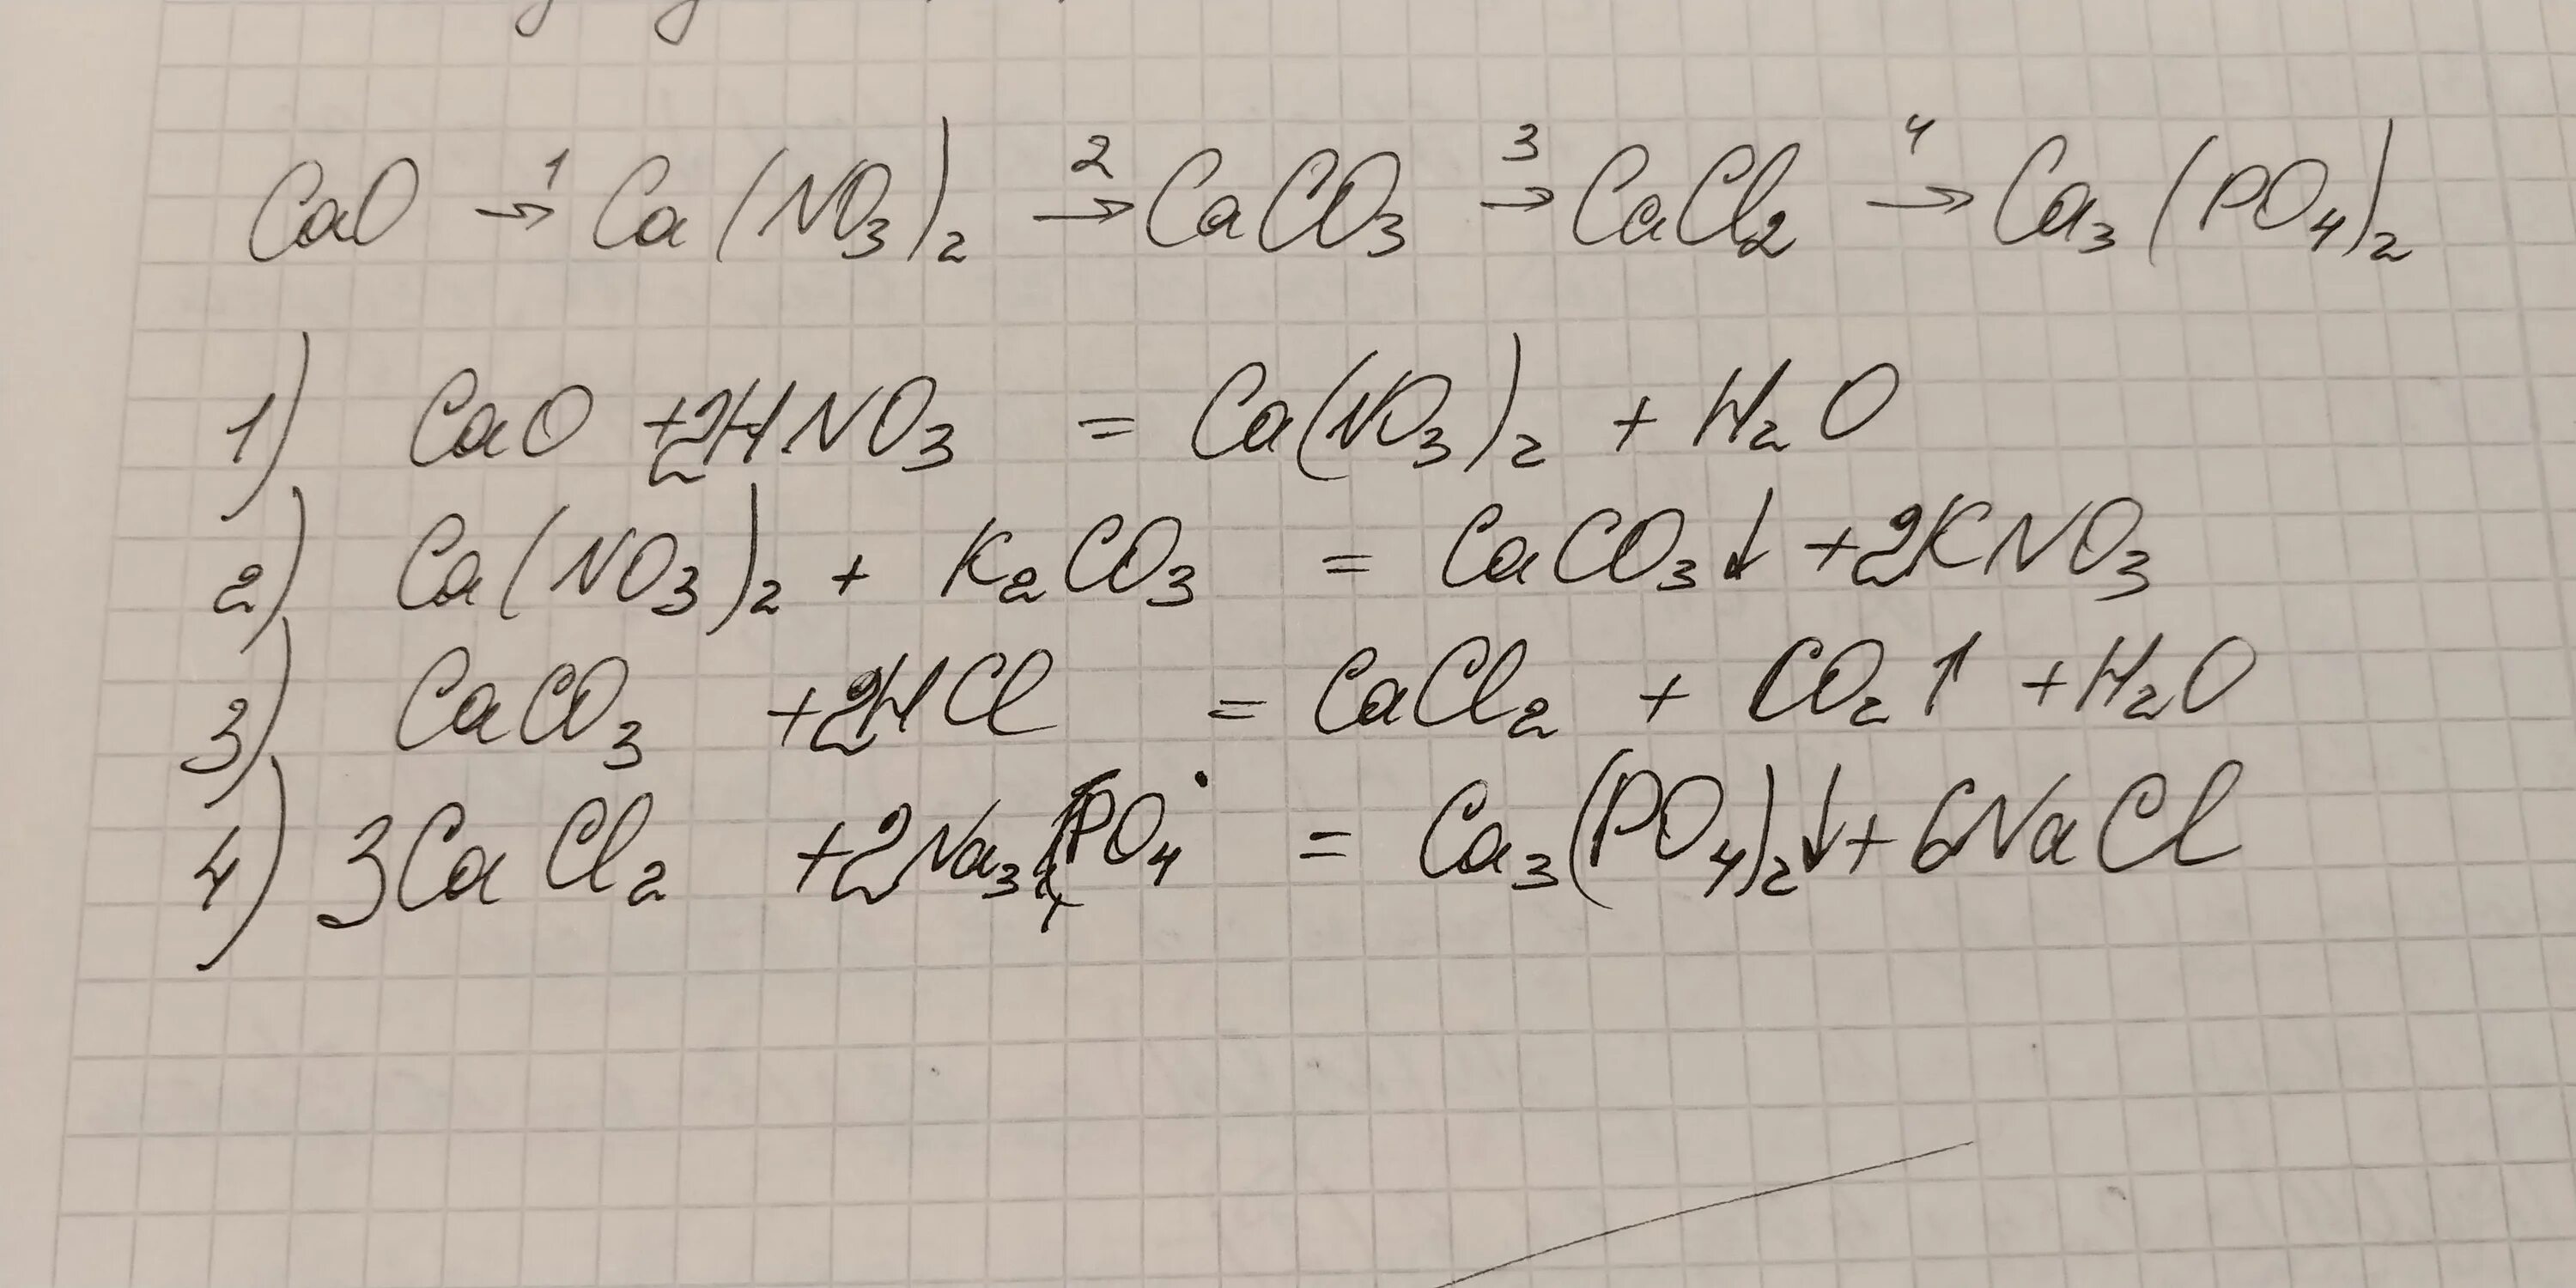 CaO →¹ Ca(NO₃)₂ →² CaCO₃ →³ CaCl₂ →⁴ Ca₃(PO₄)₂
1) CaO +2HNO₃ = Ca(NO₃)₂ + H₂O
2) Ca(NO₃)₂ + K₂CO₃ = CaCO₃↓ +2KNO₃
3) CaCO₃ +2HCl = CaCl₂ + CO₂↑ +H₂O
4) 3CaCl₂ +2Na₃PO₄ = Ca₃(PO₄)₂↓+ 6NaCl